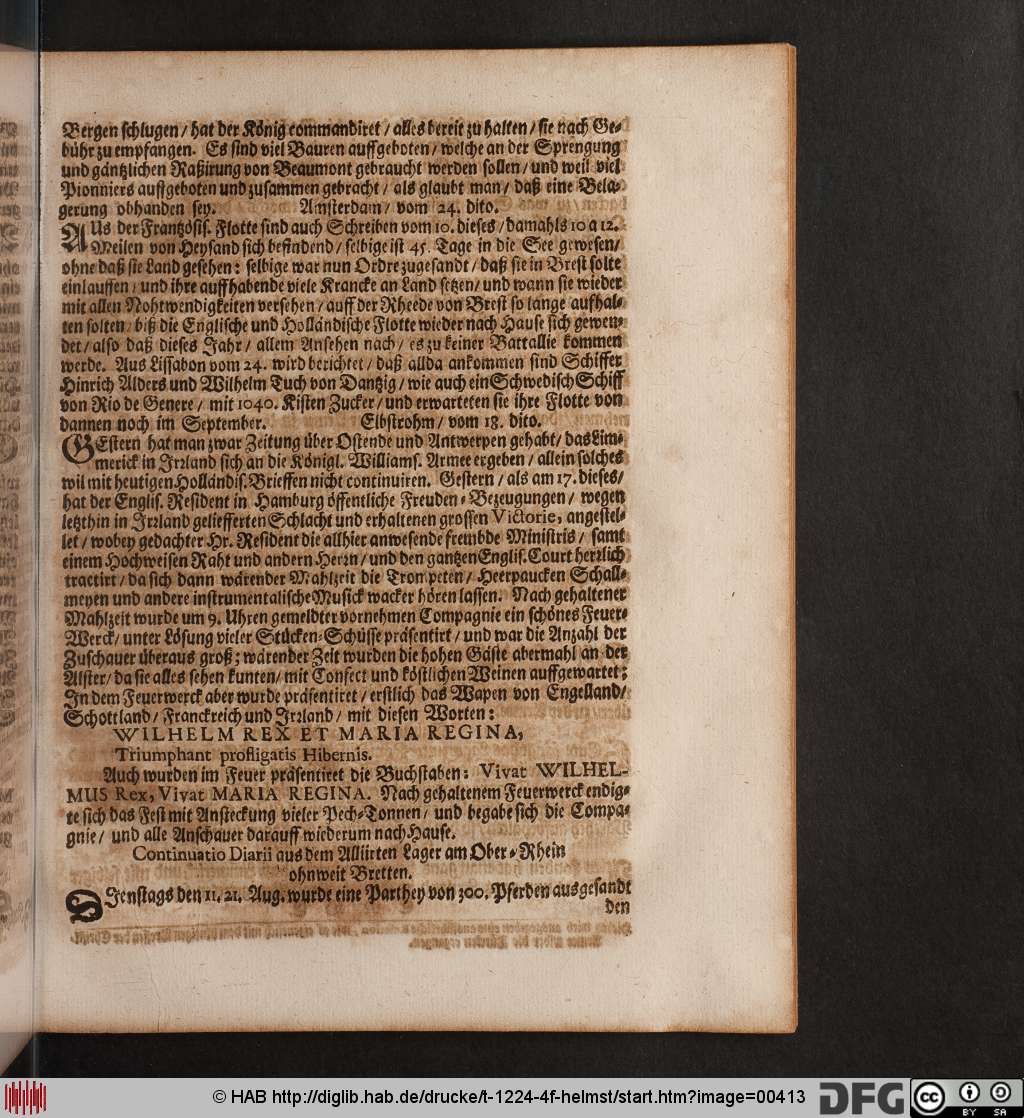 Bergen schlugen / hat der König commandiret / alles bereit zu halten / sie nach Ge-
bühr zu empfangen. Es sind viel Bauren auffgeboten / welche an der Sprengung
und gäntzlichen Raßirung von Beaumont gebraucht werden sollen / und weil viel
Pionniers außgeboten und zusammen gebracht / als glaubt man / daß eine Bela-
gerung obhanden sey. Amsterdam / vom 24. dito.
AUs der Frantzösis. Flotte sind auch Schreiben vom 10. dieses / damahls 10 a 12.
Meilen von Heysand sich befindend / selbige ist 45. Tage in die See gewesen /
ohne daß sie Land gesehen: selbige war nun Ordre zugesandt / daß sie in Brest solte
einlauffen / und ihre auffhabende viele Krancke an Land setzen / und wann sie wieder
mit allen Nohtwendigkeiten versehen / auff der Rheede von Brest so lange aufhal-
ten solten / biß die Englische und Holländische Flotte wieder nach Hause sich gewen-
det / also daß dieses Jahr / allem Ansehen nach / es zu keiner Battallie kommen
werde. Aus Lissabon vom 24. wird berichtet / daß allda ankommen sind Schiffer
Hinrich Alders und Wilhelm Tuch von Dantzig / wie auch ein Schwedisch Schiff
von Rio de Genere / mit 1040. Kisten Zucker / und erwarteten sie ihre Flotte von
dannen noch im September. Elbstrohm / vom 18. dito.
GEstern hat man zwar Zeitung über Ostende und Antwerpen gehabt / das Lim-
merick in Irꝛland sich an die Königl. Williams. Armee ergeben / allein solches
wil mit heutigen Holländis. Brieffen nicht continuiren. Gestern / als am 17. dieses /
hat der Englis. Resident in Hamburg öffentliche Freuden-Bezeugungen / wegen
letzthin in Irꝛland geliefferten Schlacht und erhaltenen grossen Victorie, angestel-
let / wobey gedachter Hr. Resident die allhier anwesende frembde Ministris / samt
einem Hochweisen Raht und andern Herꝛn / und den gantzen Englis. Court herꝛlich
tractirt / da sich dann wärender Mahlzeit die Trompeten / Heerpaucken Schall-
meyen und andere instrumentalische Musick wacker hören lassen. Nach gehaltener
Mahlzeit wurde um 9. Uhren gemeldter vornehmen Compagnie ein schönes Feuer-
Werck / unter Lösung vieler Stücken-Schüsse präsentirt / und war die Anzahl der
Zuschauer überaus groß; wärender Zeit wurden die hohen Gäste abermahl an der
Alster / da sie alles sehen kunten / mit Confect und köstlichen Weinen auffgewartet;
In dem Feuerwerck aber wurde präsentiret / erstlich das Wapen von Engelland /
Schottland / Franckreich und Irꝛland / mit diesen Worten:
WILHELM REX ET MARIA REGINA,
Triumphant profligatis Hibernis.
Auch wurden im Feuer präsentiret die Buchstaben: Vivat WILHEL-
MUS Rex, Vivat MARIA REGINA. Nach gehaltenem Feuerwerck endig-
te sich das Fest mit Ansteckung vieler Pech-Tonnen / und begabe sich die Compa-
gnie / und alle Anschauer darauff wiederum nach Hause.
Continuatio Diarii aus dem Alliirten Lager am Ober-Rhein
ohnweit Bretten.
DIenstags den 11. 21. Aug. wurde eine Parthey von 300. Pferden ausgesandt
den
© HAB http://diglib.hab.de/drucke/t-1224-4f-helmst/start.htm?image=00413
DFG
cc BY SA